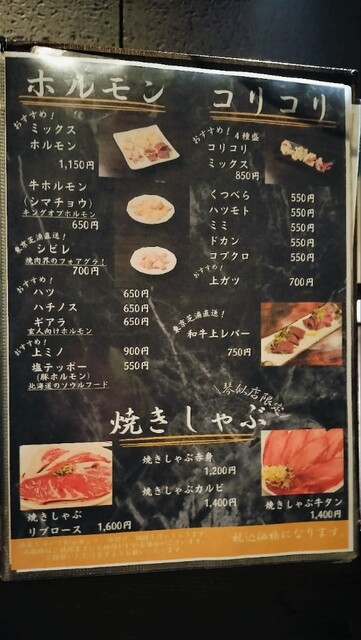 ホルモン
おすすめ!
ミックス
ホルモン
1,150円
牛ホルモン
(シマチョウ)
キングオブホルモン
650円
東京芝浦直送!
シビレ
焼肉界のフォアグラ!
700円
おすすめ!
ハツ 650円
ハチノス 650円
ギアラ 650円
玄人向けホルモン
おすすめ!
上ミノ 900円
塩テッポー 550円
(豚ホルモン)
北海道のソウルフード
コリコリ
おすすめ! 4種盛
コリコリ
ミックス
850円
くつべら 550円
ハツモト 550円
ミミ 550円
ドカン 550円
コブクロ 550円
おすすめ!
上ガツ 700円
東京芝浦直送!
和牛上レバー
750円
\琴似店限定/
焼きしゃぶ
焼きしゃぶ赤身
1,200円
焼きしゃぶカルビ
1,400円
焼きしゃぶ
リブロース 1,600円
焼きしゃぶ牛タン
1,400円
税込価格になります